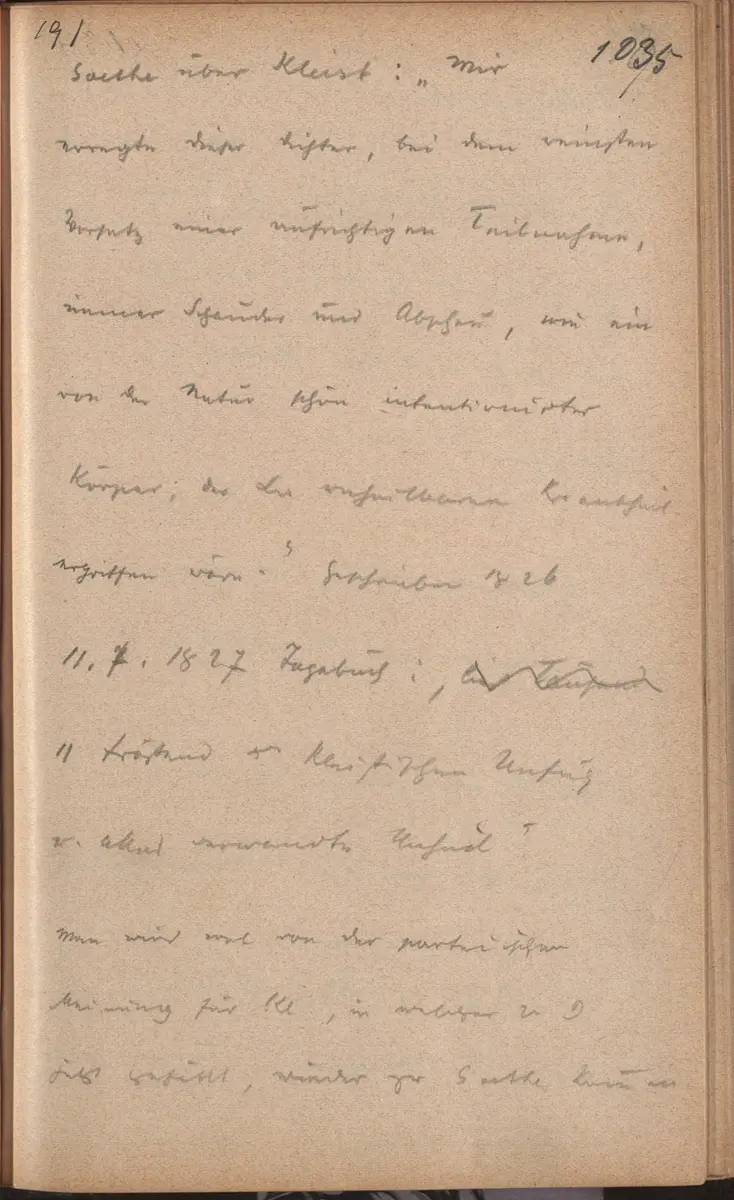 191
1035
Goethe über Kleist: „Mir
erregte dieser Dichter, bei dem reinsten
Vorsatz einer aufrichtigen Teilnahme,
immer Schauder und Abscheu, wie ein
von der Natur schön intentionirter
Körper, der von unheilbarer Krankheit
ergriffen wäre." Geschrieben 1826
11. 7. 1827 Tagebuch: „
" tröstend Kleistischen Unfug
u. alles verwandte Unheil"
Man wird wol von der parteiischen
Meinung für Kl, in welcher
jetzt gefällt, wieder zu Goethe kommen